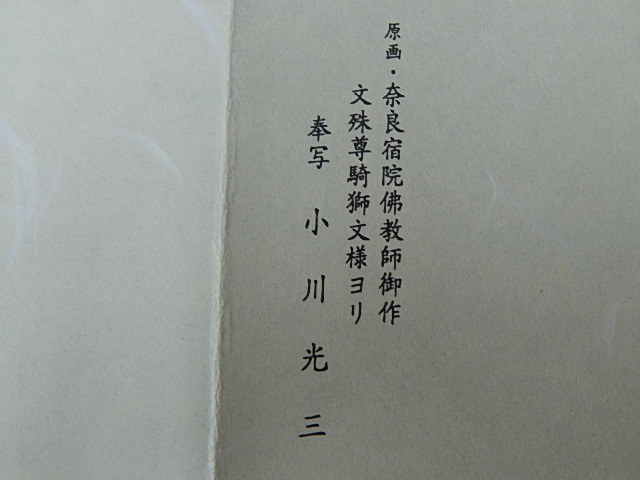 原画・奈良宿院佛教師御作
文殊尊騎獅文様ヨリ
奉写 小川光三